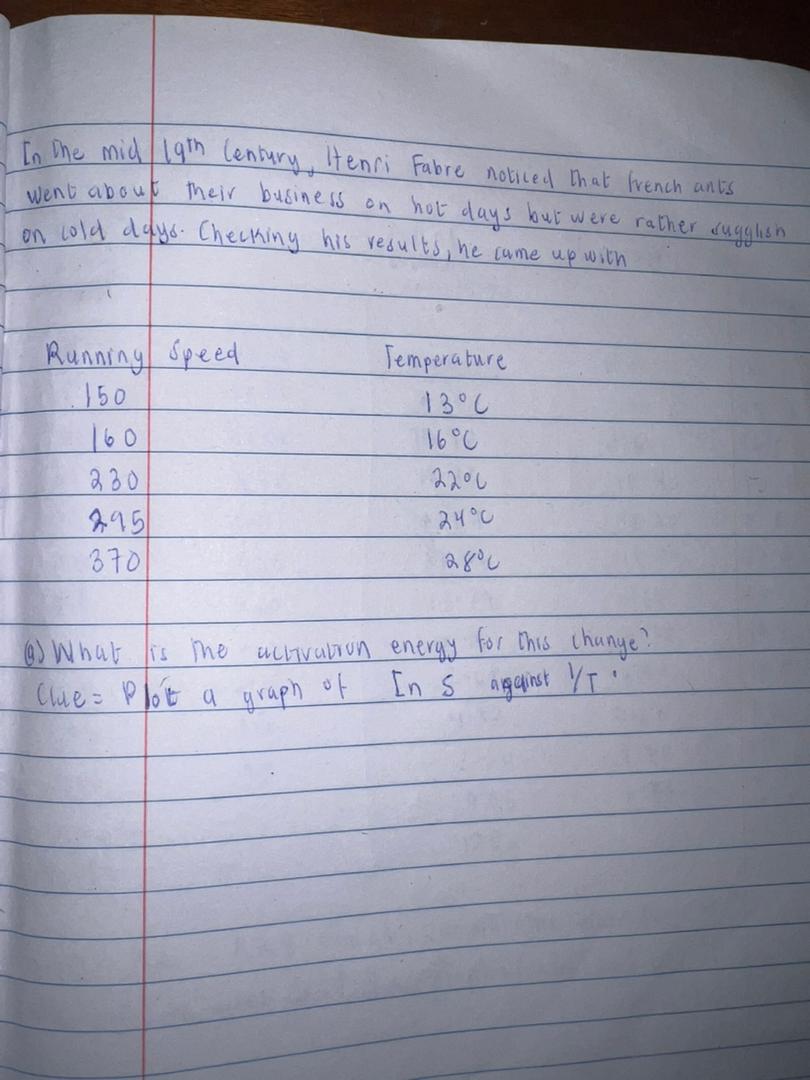 In the mid 19th Century, Henri Fabre noticed that french ants
went about their business on hot days but were rather sugglish
on cold days. Checking his results, he came up with
Running Speed Temperature
150 13°C
160 16°C
230 22°C
295 24°C
370 28°C
(a) What is the activation energy for this change?
Clue = Plot a graph of In S against 1/T.